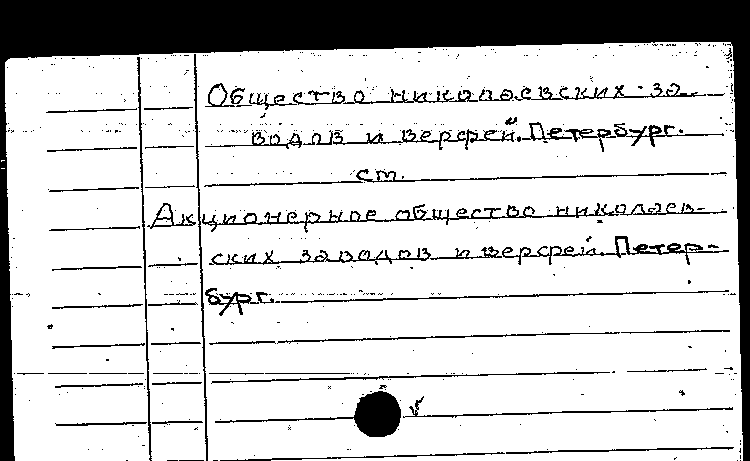 Общество николаевских за-
водов и верфей. Петербург.
ст.
Акционерное общество николаев-
ских заводов и верфей. Петер-
бург.